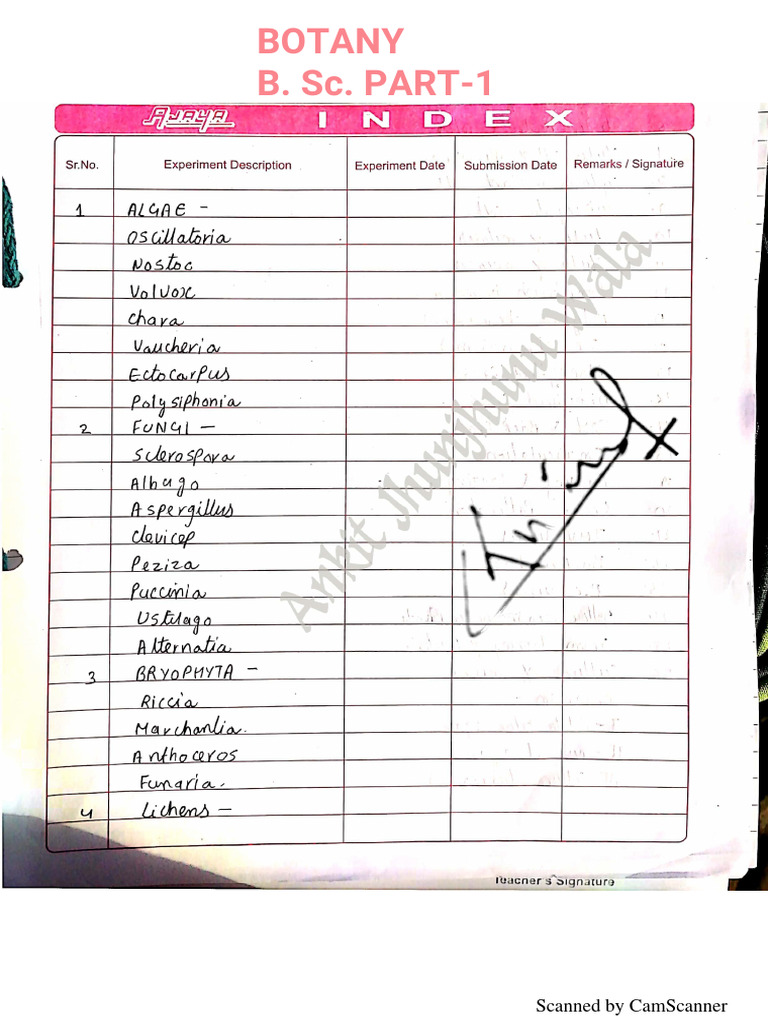 BOTANY
B. Sc. PART-1
AJAYA INDEX
Sr.No. Experiment Description Experiment Date Submission Date Remarks / Signature
1 ALGAE -
Oscillatoria
Nostoc
Volvox
Chara
Vaucheria
Ectocarpus
Polysiphonia
2 FUNGI -
Sclerospora
Albugo
Aspergillus
Clavicep
Peziza
Puccinia
Ustilago
Alternatia
3 BRYOPHYTA -
Riccia
Marchantia.
Anthoceros
Funaria.
4 Lichens -
Ankit Jhunjhunu Wala
Teacher's Signature
Scanned by CamScanner